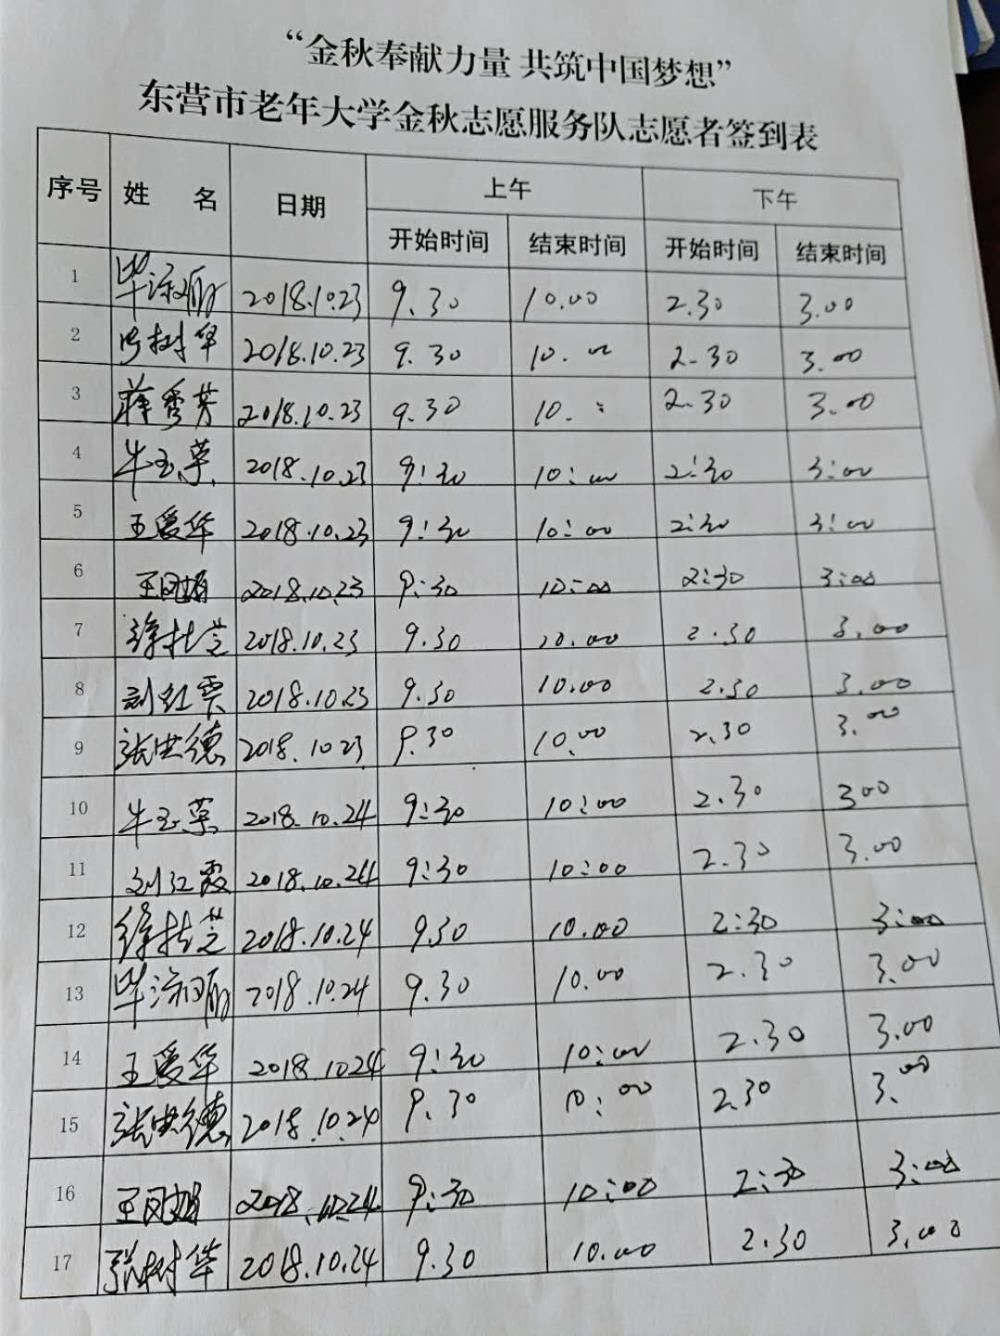 “金秋奉献力量 共筑中国梦想”
东营市老年大学金秋志愿服务队志愿者签到表
序号 姓 名 日期 上午 下午
开始时间 结束时间 开始时间 结束时间
1 毕 2018.10.23 9.30 10.00 2.30 3.00
2 树华 2018.10.23 9.30 10.00 2.30 3.00
3 蒋秀芳 2018.10.23 9.30 10. 2.30 3.00
4 牛玉英 2018.10.23 9:30 10:00 2:30 3:00
5 王爱华 2018.10.23 9:30 10:00 2:30 3:00
6 王凤娟 2018.10.23 9:30 10:00 2:30 3:00
7 徐桂芝 2018.10.23 9.30 10.00 2.30 3.00
8 刘红霞 2018.10.23 9.30 10.00 2.30 3.00
9 张洪德 2018.10 23 9.30 10.00 2.30 3.00
10 牛玉英 2018.10.24 9:30 10:00 2.30 300
11 刘红霞 2018.10.24 9:30 10:00 2.30 3.00
12 徐桂芝 2018.10.24 9.30 10.00 2:30 3:00
13 毕 2018.10.24 9.30 10.00 2.30 3.00
14 王爱华 2018.1024 9:30 10:00 2.30 3.00
15 张洪德 2018.10.24 9.30 10:00 2.30 3.00
16 王凤娟 2018.10.24 9:30 10:00 2:30 3:00
17 张树华 2018.10.24 9.30 10.00 2.30 3.00